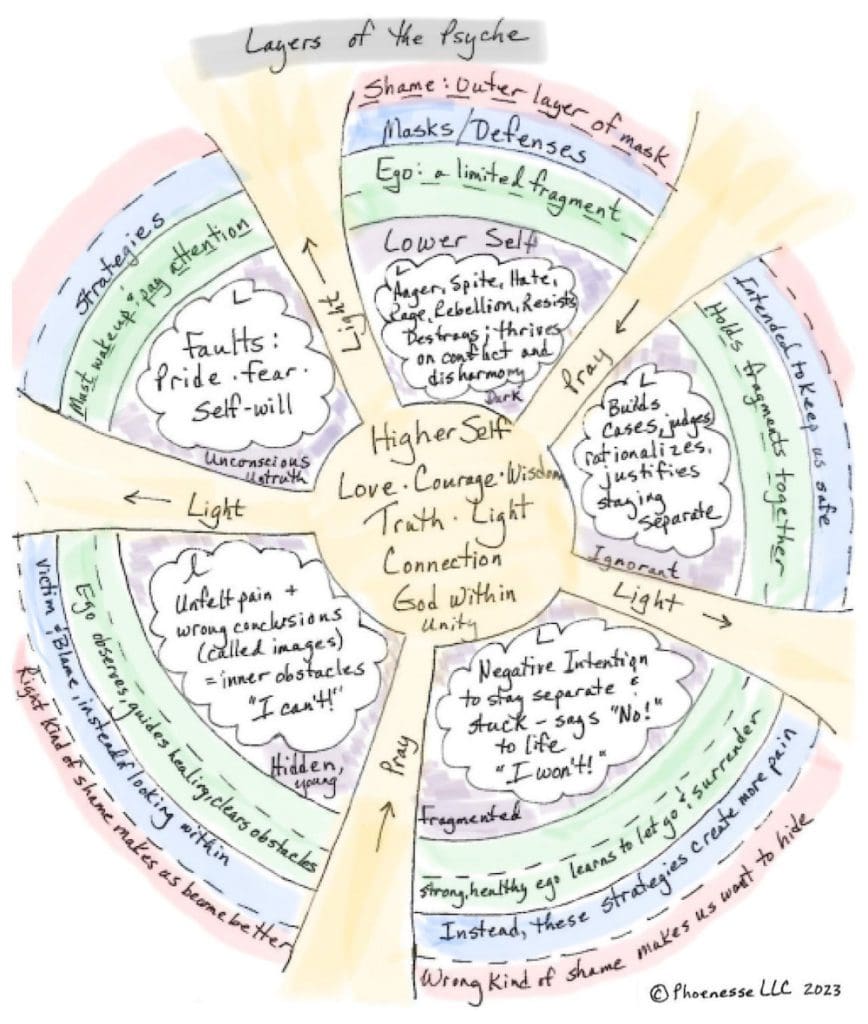 Layers of the Psyche
Shame: Outer layer of mask
Masks/Defenses
Ego: a limited fragment
Lower Self
Anger, Spite, Hate,
Rage, Rebellion, Resists
Destroys; thrives
on conflict and
disharmony
Dark
Pray
Intended to keep us safe
Holds fragments together
Builds
cases, judges,
rationalizes,
justifies
staying
separate
Ignorant
Light
Strategies
Must wakeup & pay attention
Faults:
Pride · fear ·
Self-will
Unconscious
Untruth
Light
Light
Higher Self
Love · Courage · Wisdom
Truth · Light
Connection
God Within
Unity
Unfelt pain +
wrong conclusions
(called images)
= inner obstacles
"I can't!"
Hidden,
young
Ego observes, guides healing, clears obstacles
Victim & Blame, instead of looking within
Right kind of shame makes us become better
Pray
Negative Intention
to stay separate &
stuck - says "No!"
to life
"I won't!"
Fragmented
Strong, healthy ego learns to let go & surrender
Instead, these strategies create more pain
Wrong kind of shame makes us want to hide
© Phoenesse LLC 2023